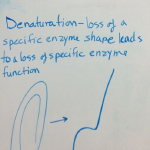 Denaturation - loss of a
specific enzyme shape leads
to a loss of specific enzyme
function